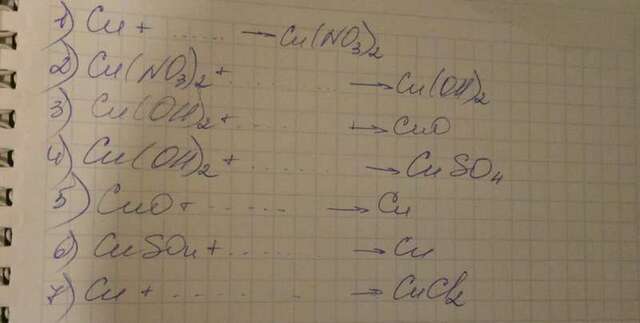 1) Cu + ...... → Cu(NO₃)₂
2) Cu(NO₃)₂ + ........ → Cu(OH)₂
3) Cu(OH)₂ + ...... → CuO
4) Cu(OH)₂ + ........ → CuSO₄
5) CuO + ....... → Cu
6) CuSO₄ + ........ → Cu
7) Cu + ........ → CuCl₂